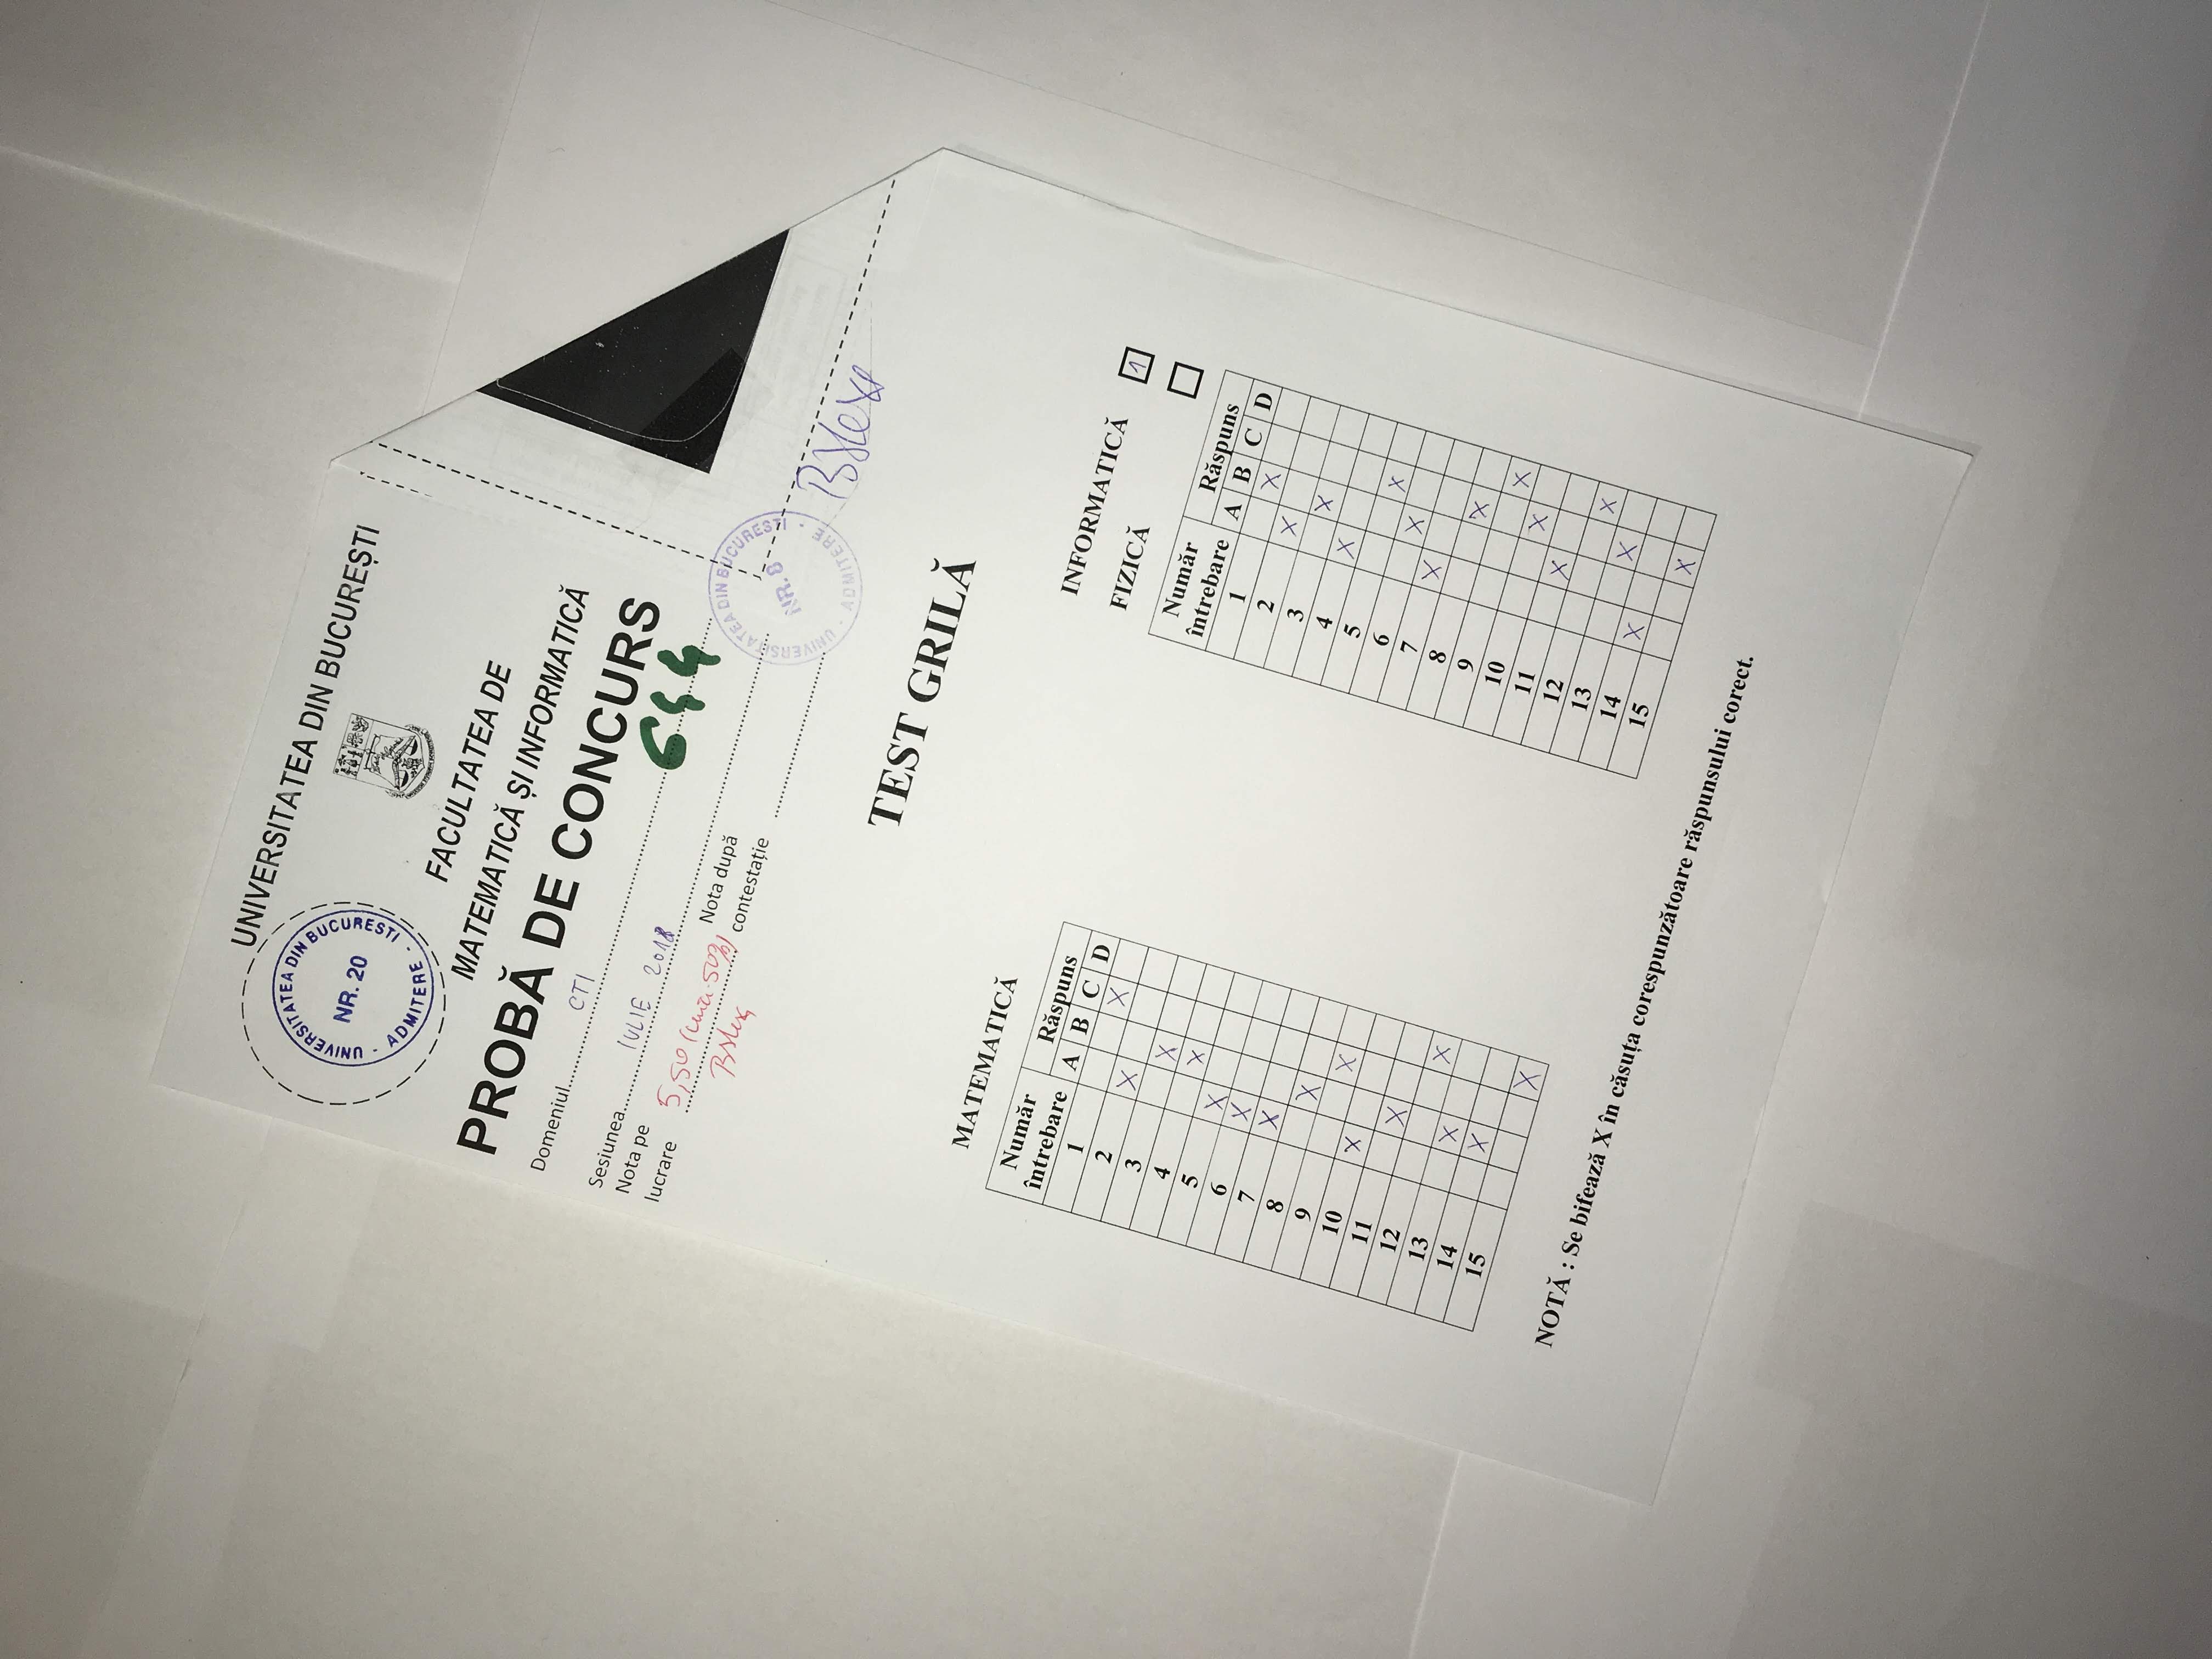 UNIVERSITATEA DIN BUCUREȘTI
UNIVERSITATEA DIN BUCURESTI
NR. 20
ADMITERE
FACULTATEA DE
MATEMATICĂ ȘI INFORMATICĂ
PROBĂ DE CONCURS
Domeniul CTI
644
Sesiunea IULIE 2018
Nota pe
lucrare 5,50
Nota după
contestație
UNIVERSITATEA DIN BUCURESTI
NR. 8
ADMITERE
TEST GRILĂ
MATEMATICĂ
Număr
întrebare
Răspuns
A B C D
1 X
2 X
3 X
4 X
5 X
6 X
7 X
8 X
9 X
10 X
11 X
12 X
13 X
14 X
15 X
INFORMATICĂ 1
FIZICĂ
Număr
întrebare
Răspuns
A B C D
1 X
2 X
3 X
4 X
5 X
6 X
7 X
8 X
9 X
10 X
11 X
12 X
13 X
14 X
15 X
NOTĂ : Se bifează X în căsuța corespunzătoare răspunsului corect.